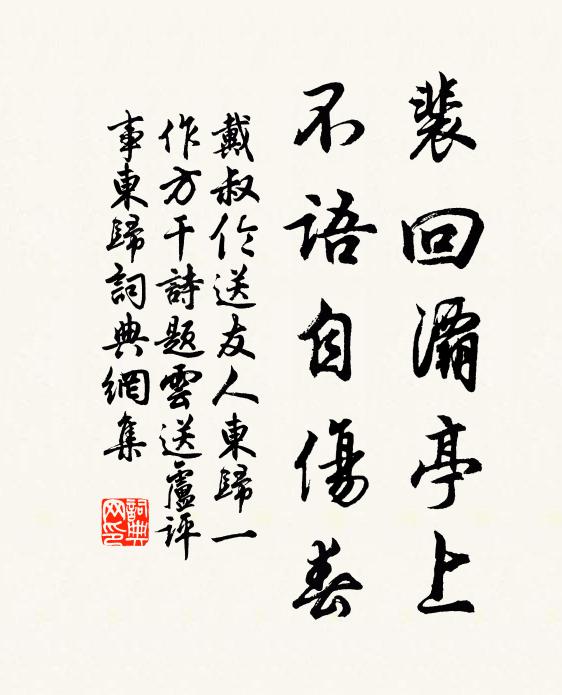 裴回灞亭上
不語自傷春
戴叔伦送友人東歸一
作方干詩题雲送盧評
事東歸詞典網集
詞典网印